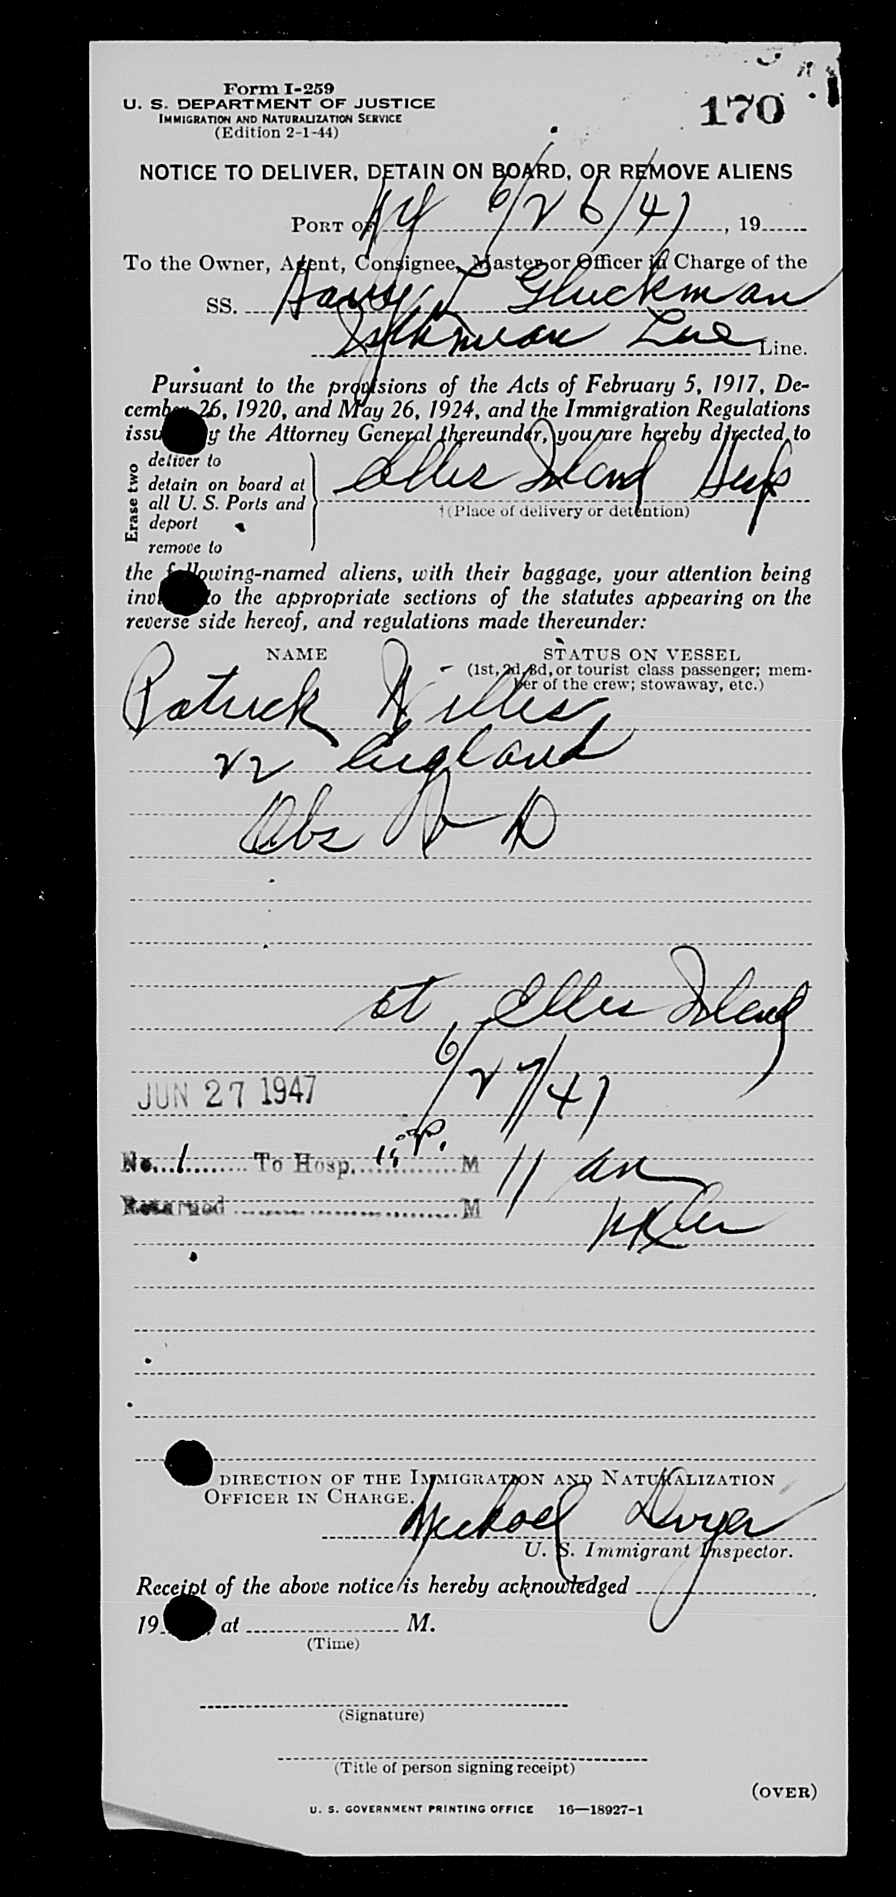 Form I-259
U. S. DEPARTMENT OF JUSTICE
IMMIGRATION AND NATURALIZATION SERVICE
(Edition 2-1-44)
170
NOTICE TO DELIVER, DETAIN ON BOARD, OR REMOVE ALIENS
PORT OF NY 6/26/47, 19
To the Owner, Agent, Consignee, Master or Officer in Charge of the
SS. Harry L Gluckman
Isthmian Line Line.
Pursuant to the provisions of the Acts of February 5, 1917, De-
cember 26, 1920, and May 26, 1924, and the Immigration Regulations
issu y the Attorney General thereunder, you are hereby directed to
Erase two
deliver to
detain on board at
all U. S. Ports and
deport
remove to
Ellis Island Hosp
†(Place of delivery or detention)
the following-named aliens, with their baggage, your attention being
inv to the appropriate sections of the statutes appearing on the
reverse side hereof, and regulations made thereunder:
NAME
STATUS ON VESSEL
(1st, 2d, 3d, or tourist class passenger; mem-
ber of the crew; stowaway, etc.)
Patrick Willis
22 England
Obs V D
at Ellis Island
6/27/47
JUN 27 1947
No. 1 To Hosp. M
11 am
Returned M
DIRECTION OF THE IMMIGRATION AND NATURALIZATION
OFFICER IN CHARGE.
Michael Dwyer
U. S. Immigrant Inspector.
Receipt of the above notice is hereby acknowledged
19 , at M.
(Time)
(Signature)
(Title of person signing receipt)
(OVER)
U. S. GOVERNMENT PRINTING OFFICE 16—18927-1